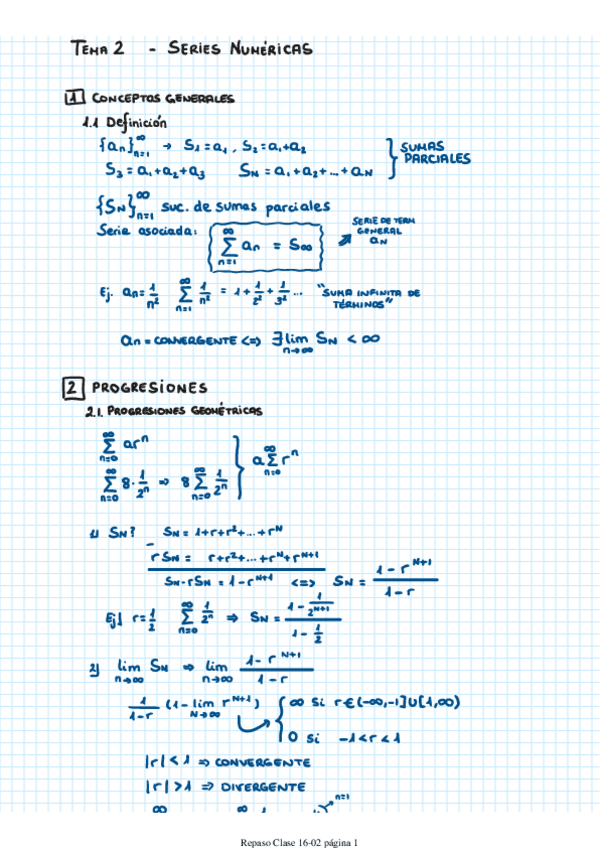 TEMA 2 - SERIES NUMÉRICAS
1 CONCEPTOS GENERALES
1.1 Definición
{an}∞n=1 → S1=a1, S2=a1+a2
S3=a1+a2+a3 SN=a1+a2+...+aN } SUMAS PARCIALES
{SN}∞n=1 suc. de sumas parciales
Serie asociada: ∑∞n=1 an = S∞ ↗ SERIE DE TERM GENERAL an
Ej. an=1/n² ∑∞n=1 1/n² = 1+1/2²+1/3²... "SUMA INFINITA DE TÉRMINOS"
an = CONVERGENTE <=> ∃ lim n→∞ SN < ∞
2 PROGRESIONES
2.1. PROGRESIONES GEOMÉTRICAS
∑∞n=0 arⁿ
∑∞n=0 8·1/2ⁿ ⇒ 8∑∞n=0 1/2ⁿ } a∑∞n=0 rⁿ
1) SN? SN=1+r+r²+...+r^N
- rSN= r+r²+...+r^N+r^(N+1)
SN-rSN=1-r^(N+1) <=> SN = (1-r^(N+1))/(1-r)
Ej| r=1/2 ∑∞n=0 1/2ⁿ ⇒ SN = (1-1/2^(N+1))/(1-1/2)
2) lim n→∞ SN ⇒ lim n→∞ (1-r^(N+1))/(1-r)
1/(1-r) (1-lim N→∞ r^(N+1)) { ∞ si r∈(-∞,-1]∪[1,∞)
0 si -1<r<1
|r|<1 ⇒ CONVERGENTE
|r|>1 ⇒ DIVERGENTE
∞ ∞ 1 n=1
Repaso Clase 16-02 página 1